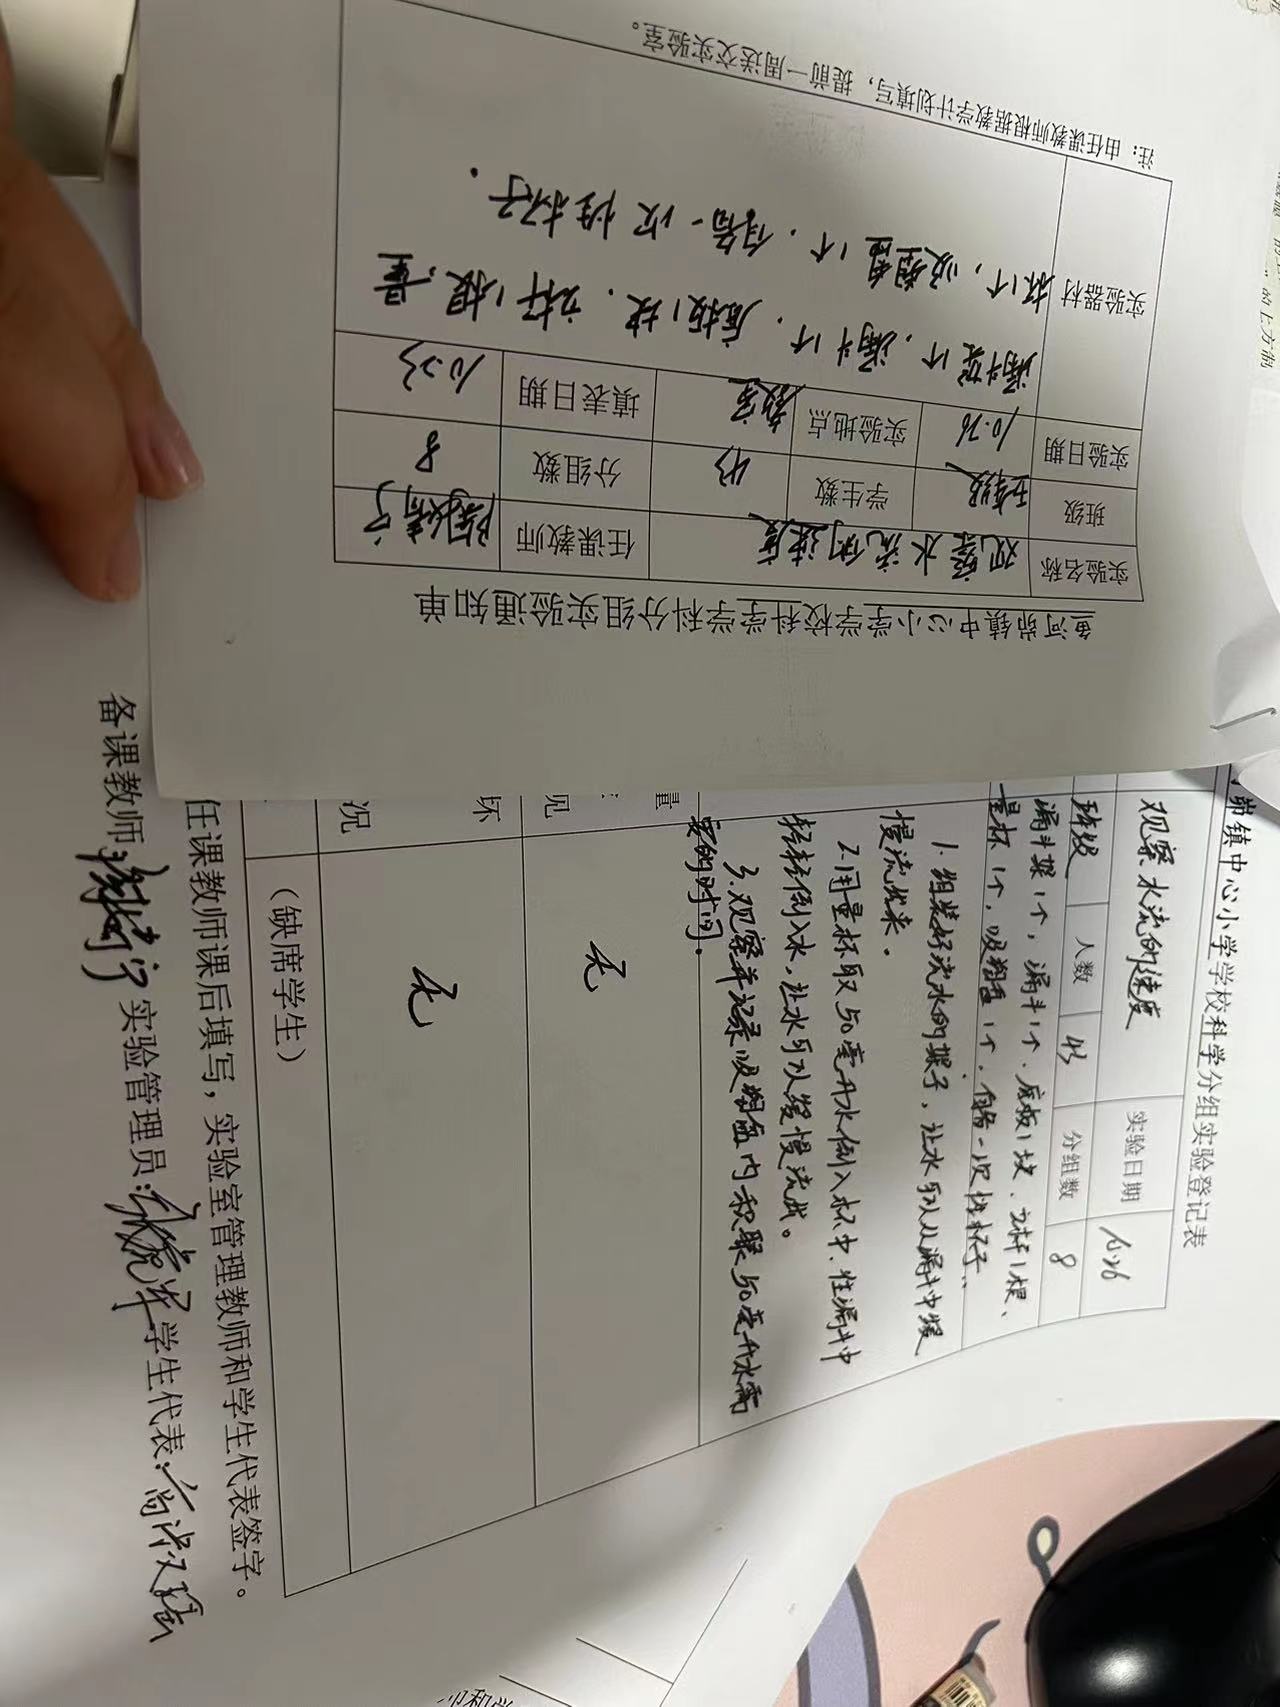 鱼河峁镇中心小学学校科学学科分组实验通知单
实验名称 观察水流的速度 任课教师
班级 五年级 学生数 43 分组数 8
实验日期 10.26 实验地点 教室 填表日期 10.23
实验器材 漏斗架1个,漏斗1个.底板1块.立杆1根,量
杯1个,吸塑盘1个.自备一次性杯子.
注:由任课教师根据教学计划填写,提前一周送交实验室。
峁镇中心小学学校科学分组实验登记表
观察水流的速度 实验日期 10.26
班级 人数 43 分组数 8
漏斗架1个,漏斗1个.底板1块.立杆1根、
量杯1个,吸塑盘1个,自备一次性杯子.
1.组装好流水的架子,让水可以从漏斗中缓
慢流出来.
2.用量杯取50毫升水倒入杯中.往漏斗中
轻轻倒入水,让水可以缓慢流出。
3.观察并记录吸塑盘内积聚50毫升水需
要的时间.
量
见 无
坏
况 无
(缺席学生)
任课教师课后填写,实验室管理教师和学生代表签字。
备课教师: 实验管理员: 学生代表: